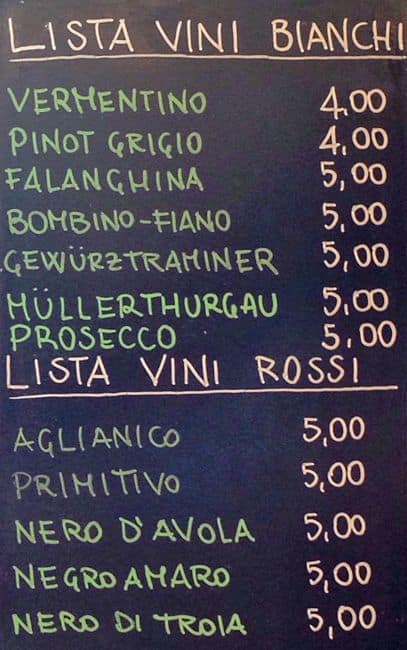 LISTA VINI BIANCHI
VERMENTINO 4,00
PINOT GRIGIO 4,00
FALANGHINA 5,00
BOMBINO-FIANO 5,00
GEWÜRZTRAMINER 5,00
MÜLLERTHURGAU 5,00
PROSECCO 5.00
LISTA VINI ROSSI
AGLIANICO 5,00
PRIMITIVO 5,00
NERO D'AVOLA 5,00
NEGROAMARO 5,00
NERO DI TROIA 5,00